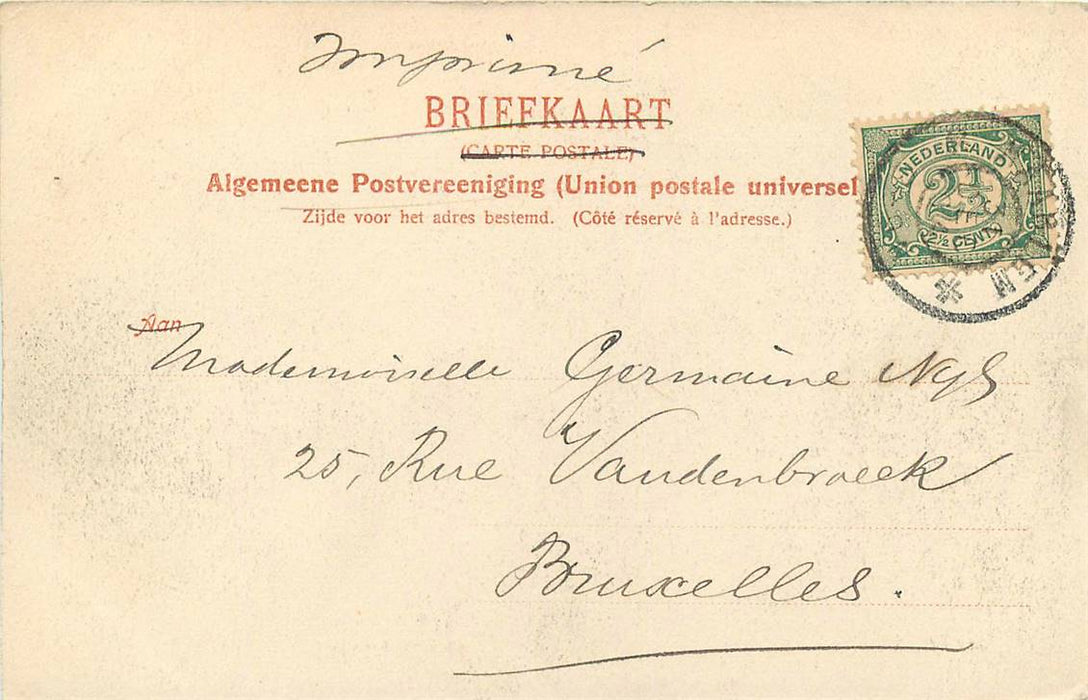 Imprimé
BRIEFKAART
(CARTE POSTALE)
Algemeene Postvereeniging (Union postale universel
Zijde voor het adres bestemd. (Côté réservé à l'adresse.)
NEDERLAND
2½
2½ CENT
Aan
Mademoiselle Germaine Nys
25, Rue Vandenbroeck
Bruxelles.